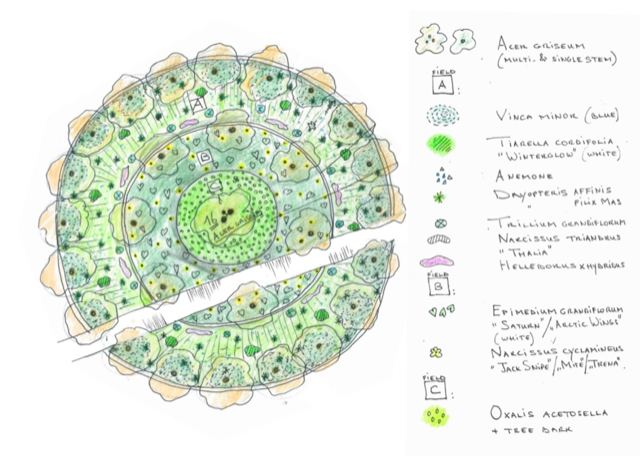 A
B
C
Acer Griseum
(multi. & singlestem)
FIELD
A :
Vinca minor (blue)
Tiarella cordifolia
"Winterglow" (white)
Anemone
Dryopteris affinis
" filix mas
Trillium grandiflorum
Narcissus triandrus
"Thalia"
Helleborus x hybridus
FIELD
B :
Epimedium grandiflorum
"Saturn"/"Arctic Wings"
(white)
Narcissus cyclamineus
"Jack Snipe"/"Mite"/"Trena"
FIELD
C :
Oxalis acetosella
+ tree bark